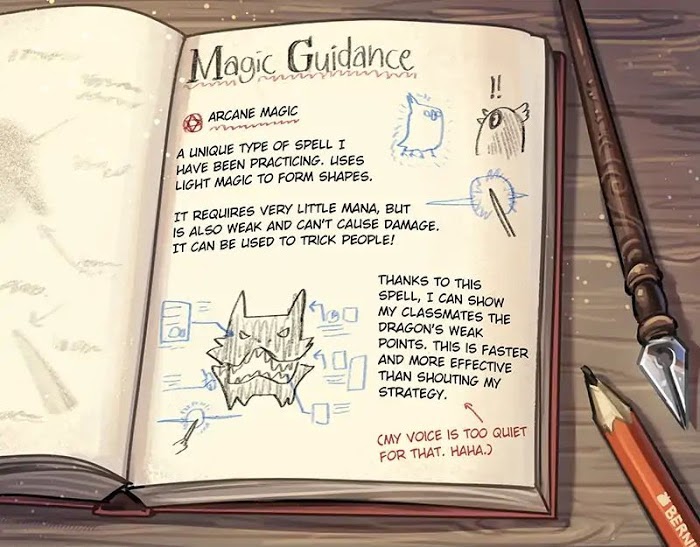 Magic Guidance
ARCANE MAGIC
A UNIQUE TYPE OF SPELL I
HAVE BEEN PRACTICING. USES
LIGHT MAGIC TO FORM SHAPES.
IT REQUIRES VERY LITTLE MANA, BUT
IS ALSO WEAK AND CAN'T CAUSE DAMAGE.
IT CAN BE USED TO TRICK PEOPLE!
!!
THANKS TO THIS
SPELL, I CAN SHOW
MY CLASSMATES THE
DRAGON'S WEAK
POINTS. THIS IS FASTER
AND MORE EFFECTIVE
THAN SHOUTING MY
STRATEGY.
(MY VOICE IS TOO QUIET
FOR THAT. HAHA.)